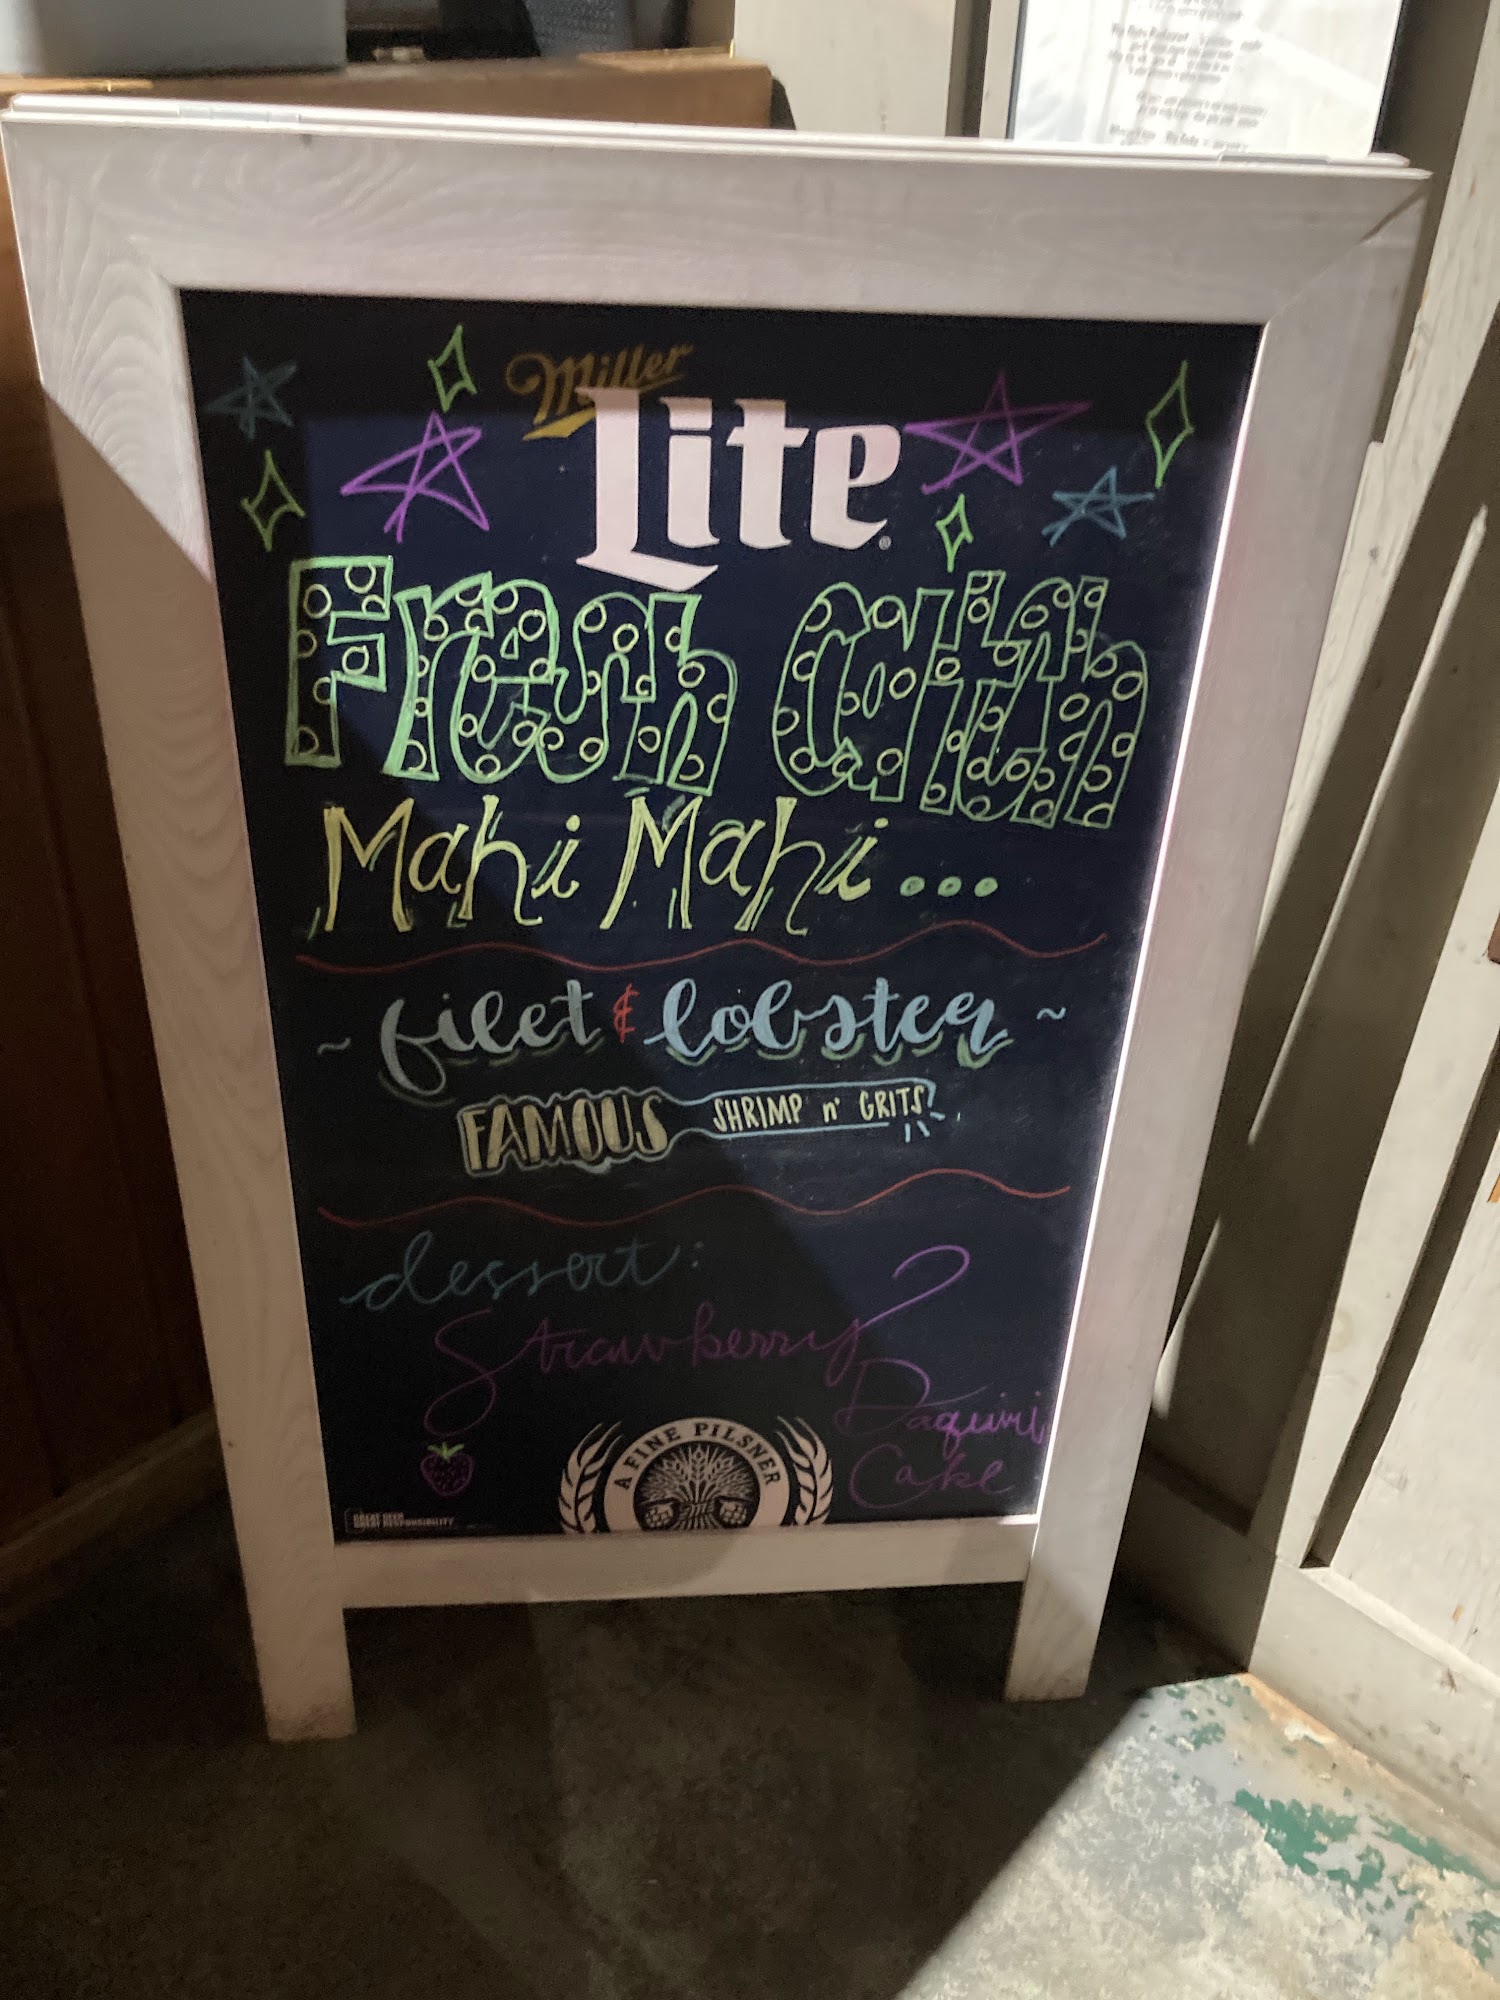 Miller
Lite
Fresh Catch
Mahi Mahi...
~ filet & lobster ~
FAMOUS SHRIMP n' GRITS!
dessert:
Strawberry
Daquiri
Cake
A FINE PILSNER
GREAT BEER
GREAT RESPONSIBILITY